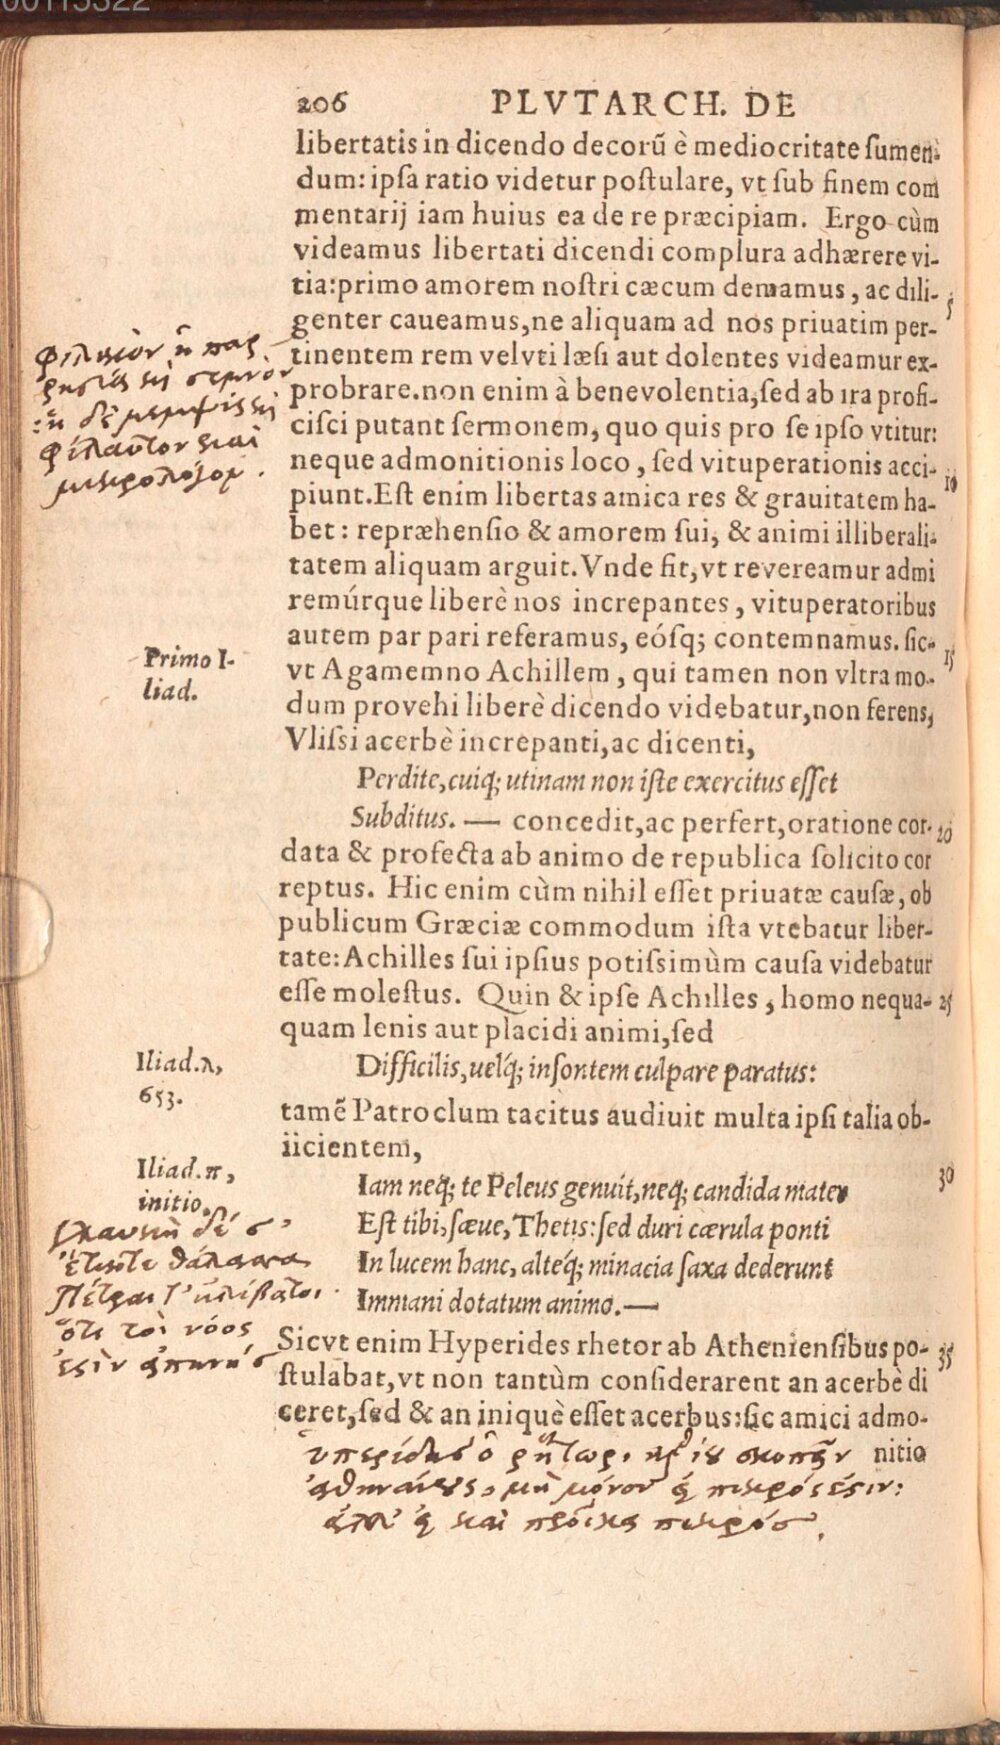 00115322
206 PLVTARCH. DE
libertatis in dicendo decorũ è mediocritate ſumen-
dum: ipſa ratio videtur poſtulare, vt ſub finem com
mentarij iam huius ea de re præcipiam. Ergo cùm
videamus libertati dicendi complura adhærere vi-
tia:primo amorem noſtri cæcum demamus, ac dili-
5
genter caueamus,ne aliquam ad nos priuatim per-
tinentem rem velvti læſi aut dolentes videamur ex-
probrare.non enim à benevolentia,ſed ab ira profi-
ciſci putant ſermonem, quo quis pro ſe ipſo vtitur:
neque admonitionis loco, ſed vituperationis acci-
10
piunt.Eſt enim libertas amica res & grauitatem ha-
bet: repræhenſio & amorem ſui, & animi illiberali-
tatem aliquam arguit.Vnde fit,vt revereamur admi
remúrque liberè nos increpantes, vituperatoribus
autem par pari referamus, eóſq; contemnamus. ſic-
15
vt Agamemno Achillem, qui tamen non vltra mo-
dum provehi liberè dicendo videbatur,non ferens,
Vliſsi acerbè increpanti,ac dicenti,
Perdite,cuiq; utinam non iſte exercitus eſſet
Subditus. — concedit,ac perfert,oratione cor-
20
data & profecta ab animo de republica ſolicito cor
reptus. Hic enim cùm nihil eſſet priuatæ cauſæ, ob
publicum Græciæ commodum iſta vtebatur liber-
tate:Achilles ſui ipſius potiſsimùm cauſa videbatur
eſſe moleſtus. Quin & ipſe Achilles, homo nequa-
25
quam lenis aut placidi animi,ſed
Difficilis,uelq́; inſontem culpare paratus:
tamẽ Patroclum tacitus audiuit multa ipſi talia ob-
iicientem,
Iam neq; te Peleus genuit,neq; candida mater
30
Eſt tibi,ſæue,Thetis:ſed duri cærula ponti
In lucem hanc, alteq́; minacia ſaxa dederunt
Immani dotatum animo.—
Sicvt enim Hyperides rhetor ab Athenienſibus po-
35
ſtulabat,vt non tantùm conſiderarent an acerbè di
ceret,ſed & an iniquè eſſet acerbus:ſic amici admo-
nitio
φιλικὸν ἡ παῤ
ῥησία καὶ σεμνὸν
ἡ δὲ μεμψις
φίλαυτον καὶ
μικρολόγον.
Primo I-
liad.
Iliad.λ,
653.
Iliad.π,
initio.
γλαυκὴ δέ σ'
ἔτικτε θάλασσα
Πέτραι τ' ἠλίβατοι
ὅτι τοὶ νόος
ἐστὶν ἀπηνής
ὑπερίδης ὁ ῥήτωρ, σκοπεῖν
ἀθηναίους, μὴ μόνον εἰ πικρός ἐστιν:
ἀλλ' εἰ καὶ προῖκα πικρός.